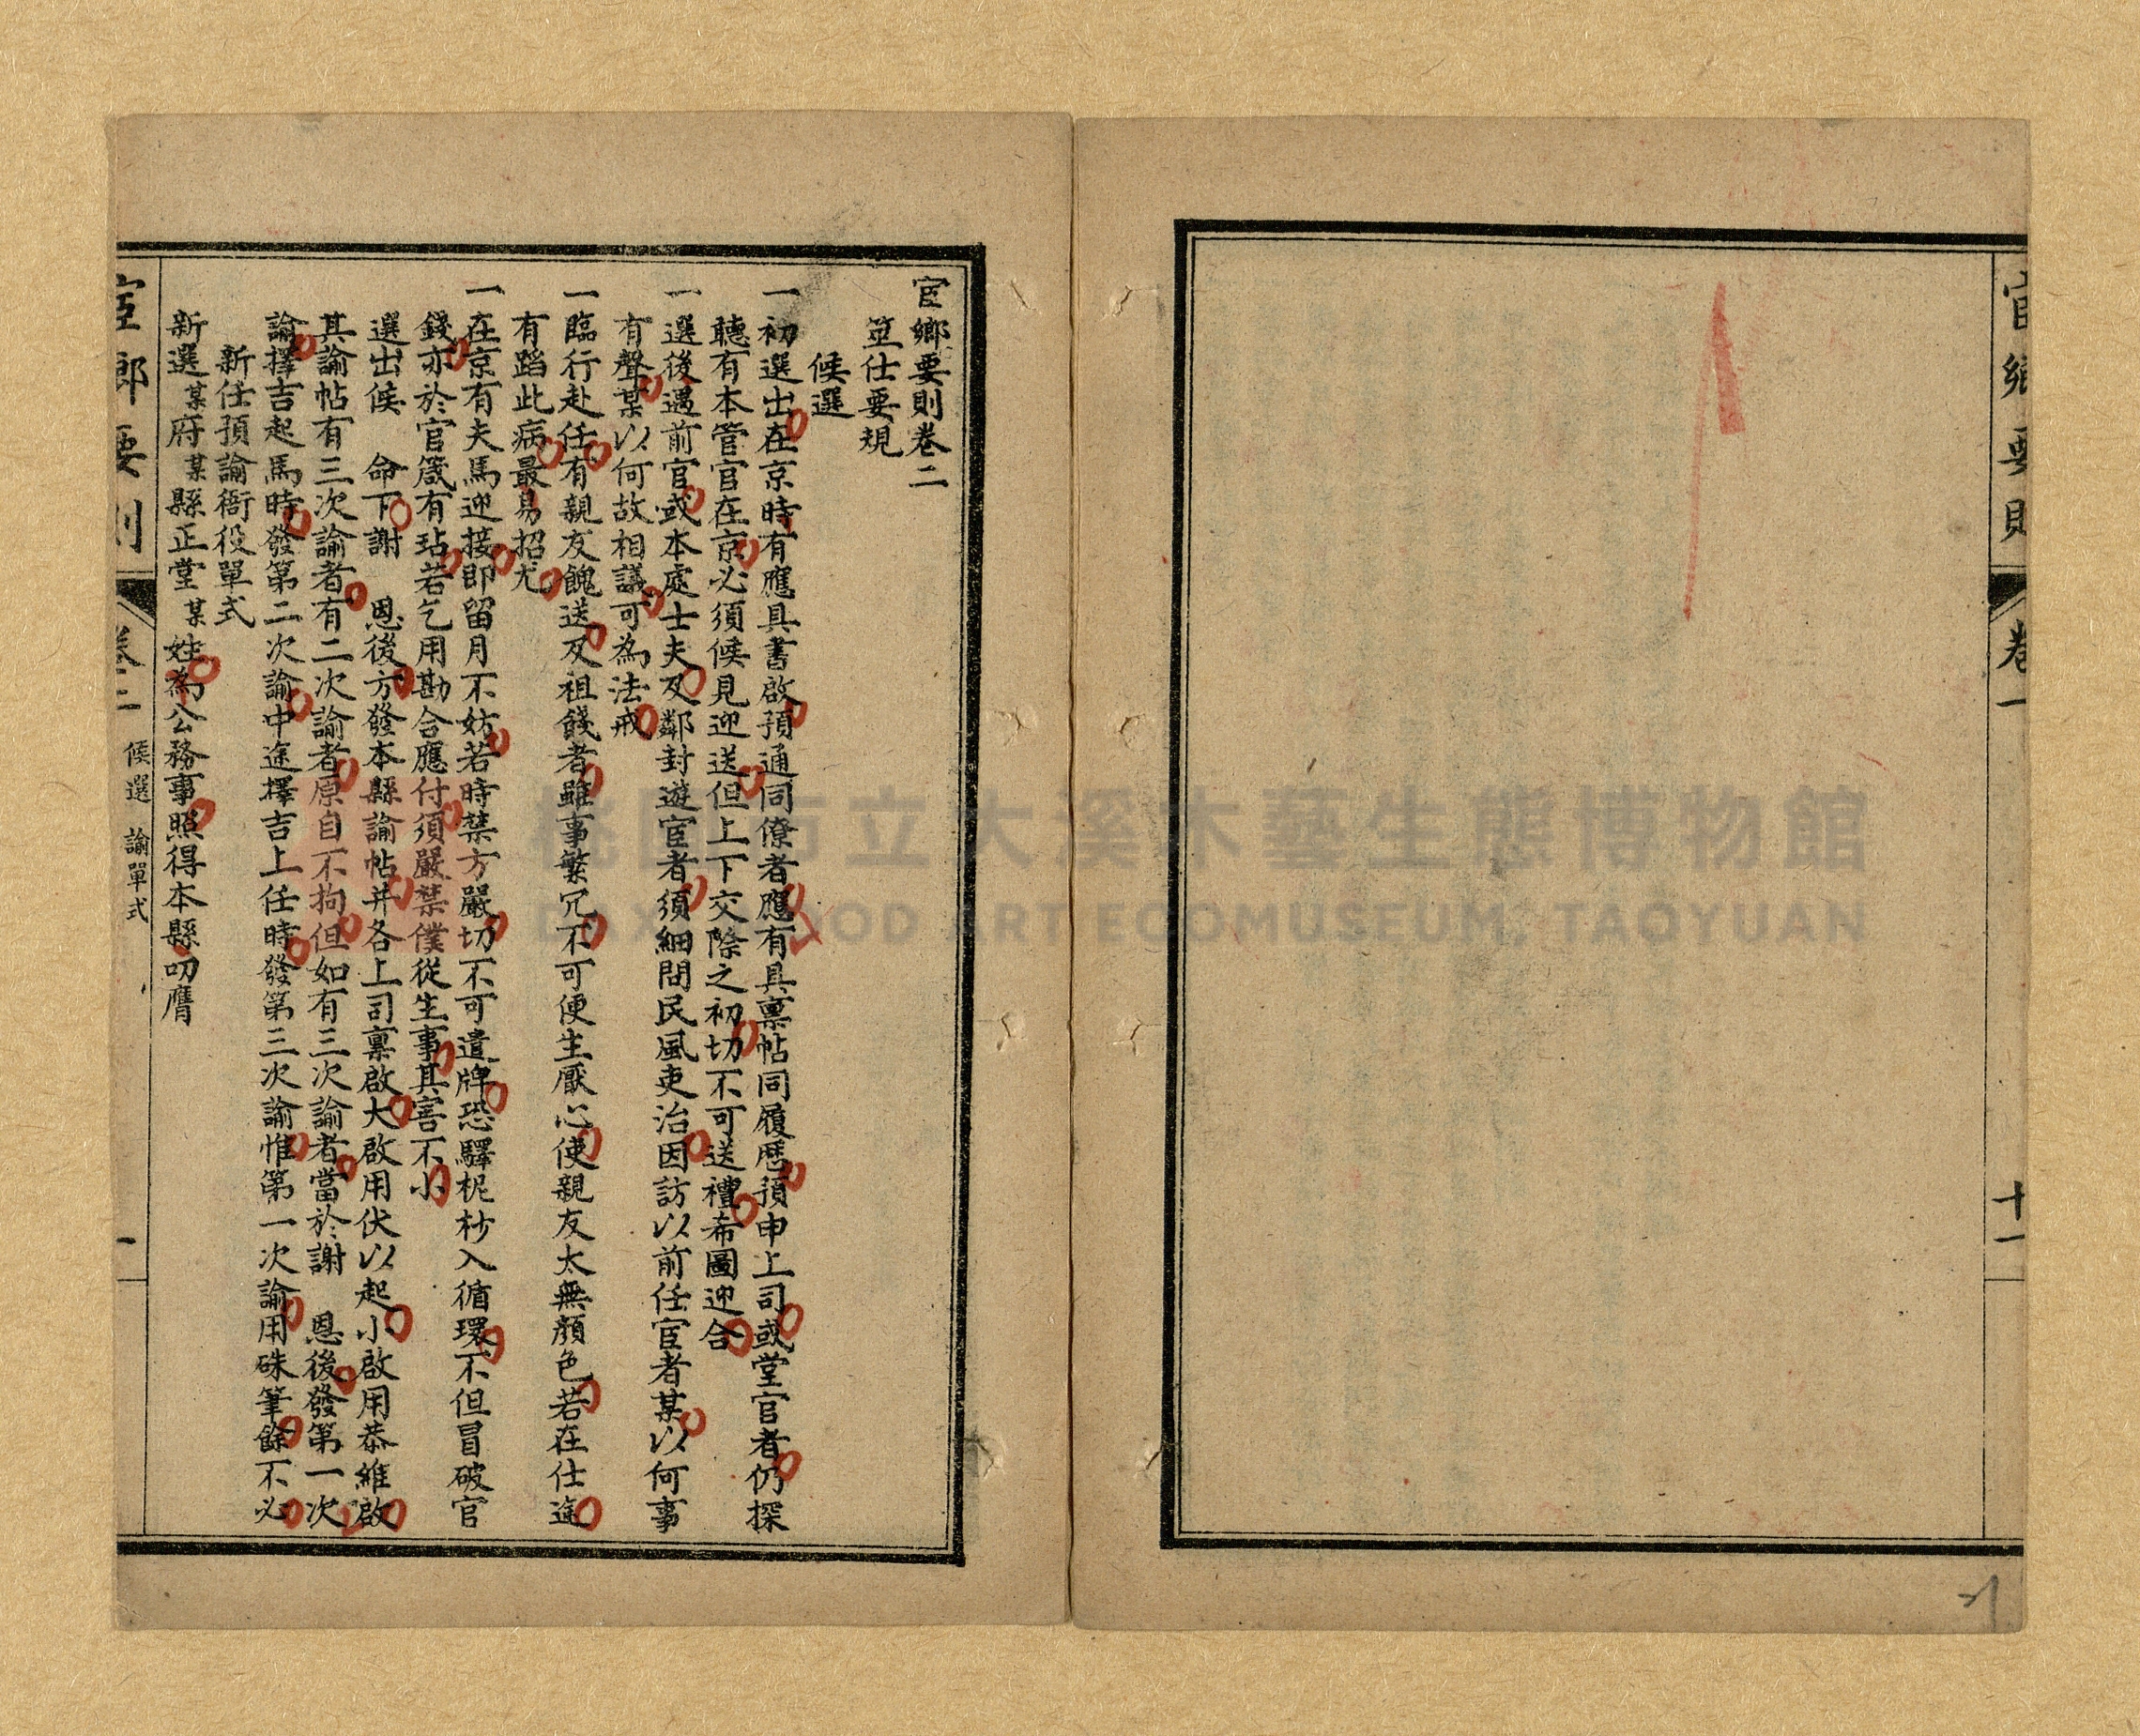 宦鄉要則
卷一
十一
宦鄉要則卷二
筮仕要規
候選
一初選出在京時有應具書啟預通同僚者應有具稟帖同履歷預申上司或堂官者仍探
聽有本管官在京必須候見迎送但上下交際之初切不可送禮希圖迎合
一選後遇前官或本處士夫及鄰封遊宦者須細問民風吏治因訪以前任宦者某以何事
有聲某以何故相議可為法戒
一臨行赴任有親友餽送及祖餞者雖事繁冗不可便生厭心使親友太無顏色若在仕途
有蹈此病最易招尤
一在京有夫馬迎接即留月不妨若時禁方嚴切不可遣牌恐驛柅杪入循環不但冒破官
錢亦於官箴有玷若乞用勘合應付須嚴禁僕從生事其害不小
選出候　命下謝　恩後方發本縣諭帖并各上司稟啟大啟用伏以起小啟用恭維啟
其諭帖有三次諭者有二次諭者原自不拘但如有三次諭者當於謝　恩後發第一次
諭擇吉起馬時發第二次諭中途擇吉上任時發第三次諭惟第一次諭用硃筆餘不必
新任預諭衙役單式
新選某府某縣正堂某姓為公務事照得本縣叨膺
宦鄉要則
卷二
候選
諭單式
一
桃園市立大溪木藝生態博物館
DAXI WOOD ART ECOMUSEUM, TAOYUAN